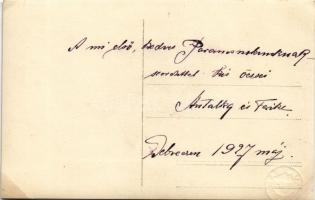 A mi első, kedves Parancsnokunknak
szeretettel kis öccsei
Antalky és Ferike.
Debreczen 1927 máj.